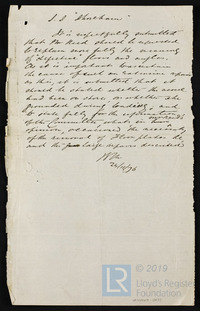 S.S "
It is respectfully submitted
that Mr Reed should be requested
to explain more fully the meaning
of defective floors and
As it is important to ascertain
the cause of such an extensive repair
as this, it is submitted that it
should be stated whether the vessel
had been on shore, or whether she
grounded during loading, and
to state fully for the information
of the Committee what, in
opinion, occasioned the necessity
of the renewal of floorplates &c
and the large repairs
24/4/76
© 2019
Lloyd's Register
Foundation